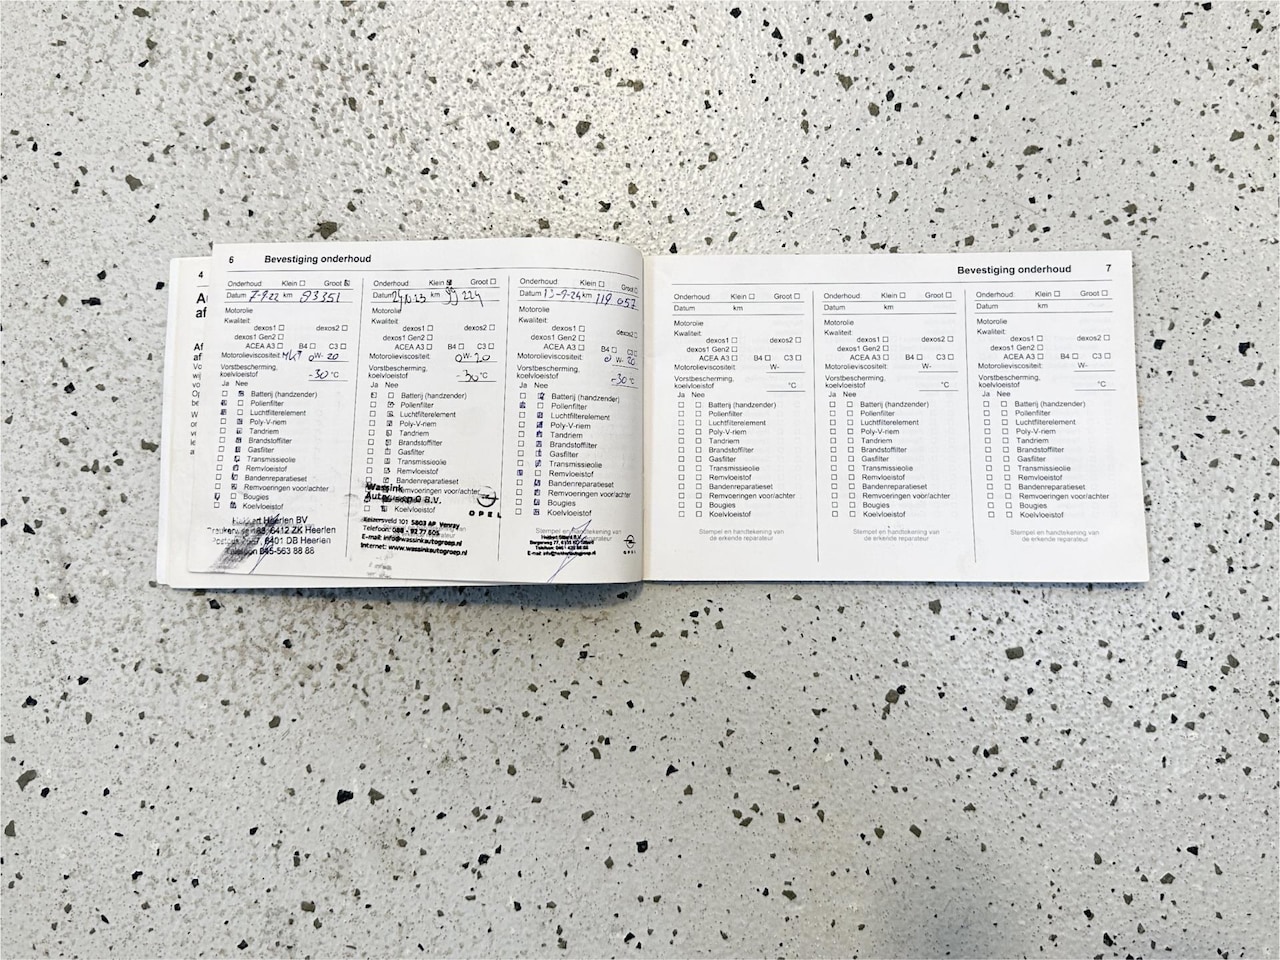 4
6 Bevestiging onderhoud
Onderhoud: Klein Groot
Datum 7-9-22 km 83351
Motorolie
Kwaliteit:
dexos1 dexos2
dexos1 Gen2
ACEA A3 B4 C3
Motorolieviscositeit: 0W-20
Vorstbescherming,
koelvloeistof -30 °C
Ja Nee
Batterij (handzender)
Pollenfilter
Luchtfilterelement
Poly-V-riem
Tandriem
Brandstoffilter
Gasfilter
Transmissieolie
Remvloeistof
Bandenreparatieset
Remvoeringen voor/achter
Bougies
Koelvloeistof
Heerlen BV
6412 ZK Heerlen
6401 DB Heerlen
045-563 88 88
Onderhoud: Klein Groot
Datum km 99224
Motorolie
Kwaliteit:
dexos1 dexos2
dexos1 Gen2
ACEA A3 B4 C3
Motorolieviscositeit: 0W-20
Vorstbescherming,
koelvloeistof -30 °C
Ja Nee
Batterij (handzender)
Pollenfilter
Luchtfilterelement
Poly-V-riem
Tandriem
Brandstoffilter
Gasfilter
Transmissieolie
Remvloeistof
Bandenreparatieset
Remvoeringen voor/achter
Koelvloeistof
Wassink
Autogroep B.V.
OPEL
Keizersveld 101 5803 AP Venray
Telefoon: 088 -
E-mail: info@wassinkautogroep.nl
Internet: www.wassinkautogroep.nl
Onderhoud: Klein Groot
Datum 13-9-24 km 119.057
Motorolie
Kwaliteit:
dexos1 dexos2
dexos1 Gen2
ACEA A3 B4 C3
Motorolieviscositeit: 0W-20
Vorstbescherming,
koelvloeistof -30 °C
Ja Nee
Batterij (handzender)
Pollenfilter
Luchtfilterelement
Poly-V-riem
Tandriem
Brandstoffilter
Gasfilter
Transmissieolie
Remvloeistof
Bandenreparatieset
Remvoeringen voor/achter
Bougies
Koelvloeistof
Stempel en handtekening van
de erkende reparateur
OPEL
Bevestiging onderhoud 7
Onderhoud: Klein Groot
Datum km
Motorolie
Kwaliteit:
dexos1 dexos2
dexos1 Gen2
ACEA A3 B4 C3
Motorolieviscositeit: W-
Vorstbescherming,
koelvloeistof °C
Ja Nee
Batterij (handzender)
Pollenfilter
Luchtfilterelement
Poly-V-riem
Tandriem
Brandstoffilter
Gasfilter
Transmissieolie
Remvloeistof
Bandenreparatieset
Remvoeringen voor/achter
Bougies
Koelvloeistof
Stempel en handtekening van
de erkende reparateur
Onderhoud: Klein Groot
Datum km
Motorolie
Kwaliteit:
dexos1 dexos2
dexos1 Gen2
ACEA A3 B4 C3
Motorolieviscositeit: W-
Vorstbescherming,
koelvloeistof °C
Ja Nee
Batterij (handzender)
Pollenfilter
Luchtfilterelement
Poly-V-riem
Tandriem
Brandstoffilter
Gasfilter
Transmissieolie
Remvloeistof
Bandenreparatieset
Remvoeringen voor/achter
Bougies
Koelvloeistof
Stempel en handtekening van
de erkende reparateur
Onderhoud: Klein Groot
Datum km
Motorolie
Kwaliteit:
dexos1 dexos2
dexos1 Gen2
ACEA A3 B4 C3
Motorolieviscositeit: W-
Vorstbescherming,
koelvloeistof °C
Ja Nee
Batterij (handzender)
Pollenfilter
Luchtfilterelement
Poly-V-riem
Tandriem
Brandstoffilter
Gasfilter
Transmissieolie
Remvloeistof
Bandenreparatieset
Remvoeringen voor/achter
Bougies
Koelvloeistof
Stempel en handtekening van
de erkende reparateur